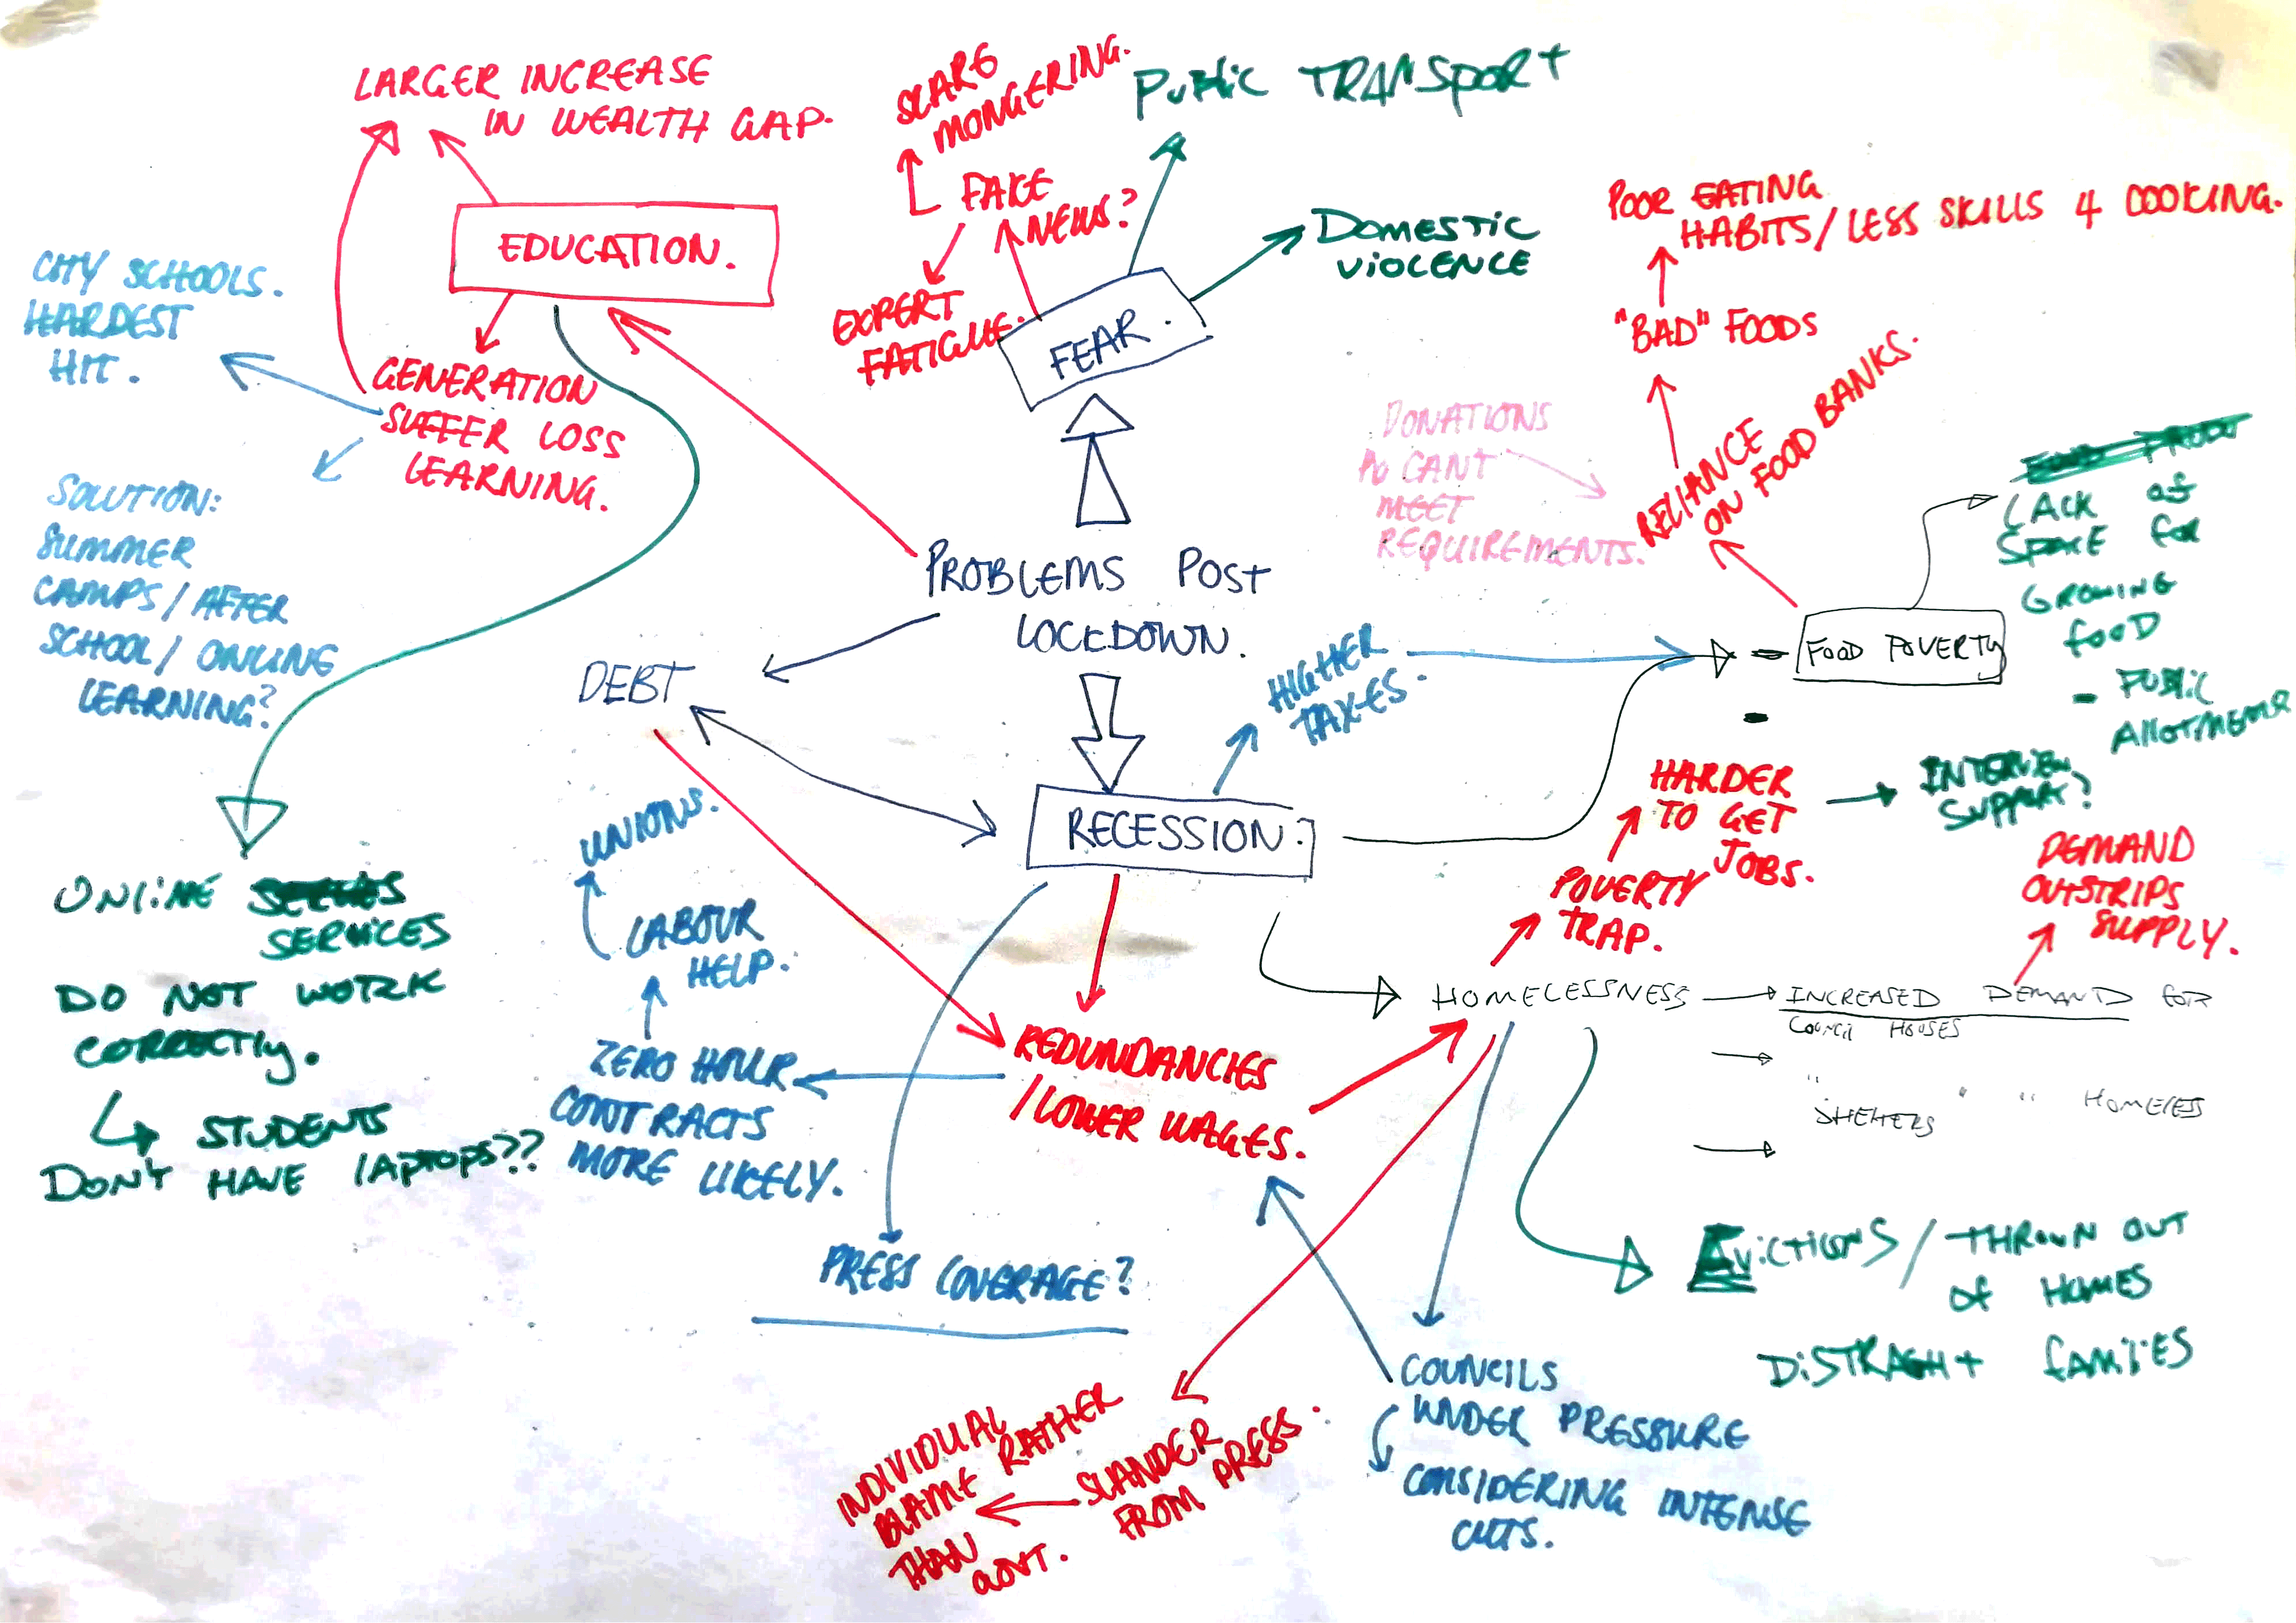 LARGER INCREASE
IN WEALTH GAP.
EDUCATION.
CITY SCHOOLS.
HARDEST
HIT.
GENERATION
SUFFER LOSS
LEARNING.
SOLUTION:
SUMMER
CAMPS/AFTER
SCHOOL/ONLINE
LEARNING?
ONLINE
SERVICES
DO NOT WORK
CORRECTLY.
STUDENTS
DON'T HAVE LAPTOPS??
SCARE
MONGERING.
FAKE
NEWS?
EXPERT
FATIGUE.
PUBLIC TRANSPORT
DOMESTIC
VIOLENCE
FEAR.
PROBLEMS POST
LOCKDOWN.
DEBT
RECESSION.
HIGHER
TAXES.
UNIONS.
LABOUR
HELP.
ZERO HOUR
CONTRACTS
MORE LIKELY.
REDUNDANCIES
/LOWER WAGES.
PRESS COVERAGE?
POOR EATING
HABITS/LESS SKILLS 4 COOKING.
"BAD" FOODS
RELIANCE
ON FOOD BANKS.
DONATIONS
CANT
MEET
REQUIREMENTS.
FOOD POVERTY
LACK OF
SPACE FOR
GROWING
FOOD
- PUBLIC
ALLOTMENTS
HARDER
TO GET
JOBS.
INTERVIEW
SUPPORT?
POVERTY
TRAP.
DEMAND
OUTSTRIPS
SUPPLY.
HOMELESSNESS
INCREASED DEMAND FOR
COUNCIL HOUSES
" " " HOMELESS
SHELTERS
EVICTIONS/THROWN OUT
OF HOMES
DISTRAGHT FAMILIES
COUNCILS
UNDER PRESSURE
CONSIDERING INTENSE
CUTS.
SLANDER
FROM PRESS.
INDIVIDUAL
BLAME RATHER
THAN
GOVT.